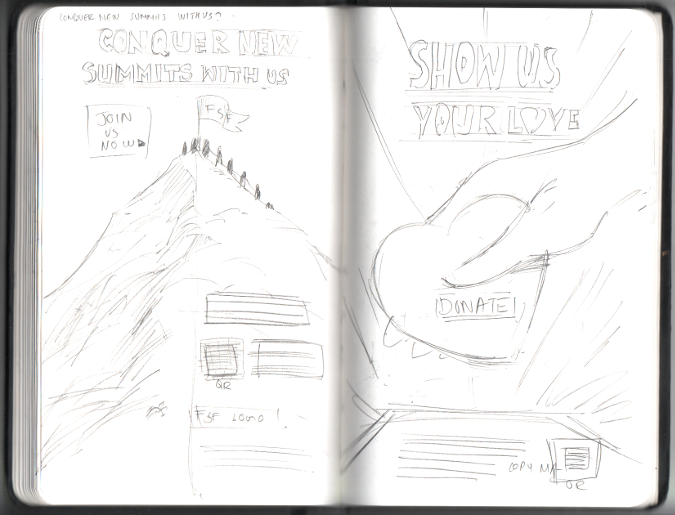 CONQUER NEW SUMMITS WITH US?
CONQUER NEW
SUMMITS WITH US
FSF
JOIN
US
NOW
QR
FSF LOGO
SHOW US
YOUR LOVE
DONATE
COPY
QR